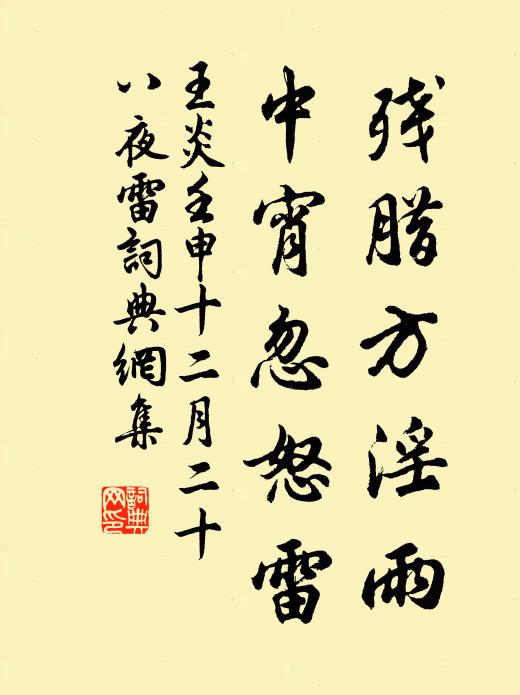 残腊方淫雨
中宵忽怒雷
王炎壬申十二月二十
八夜雷詞典網集
詞典
网印